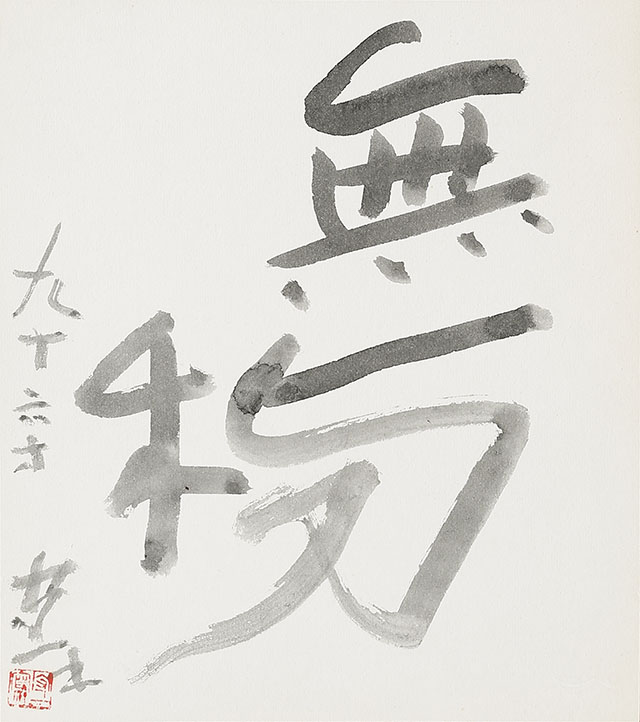 無物
九十六才